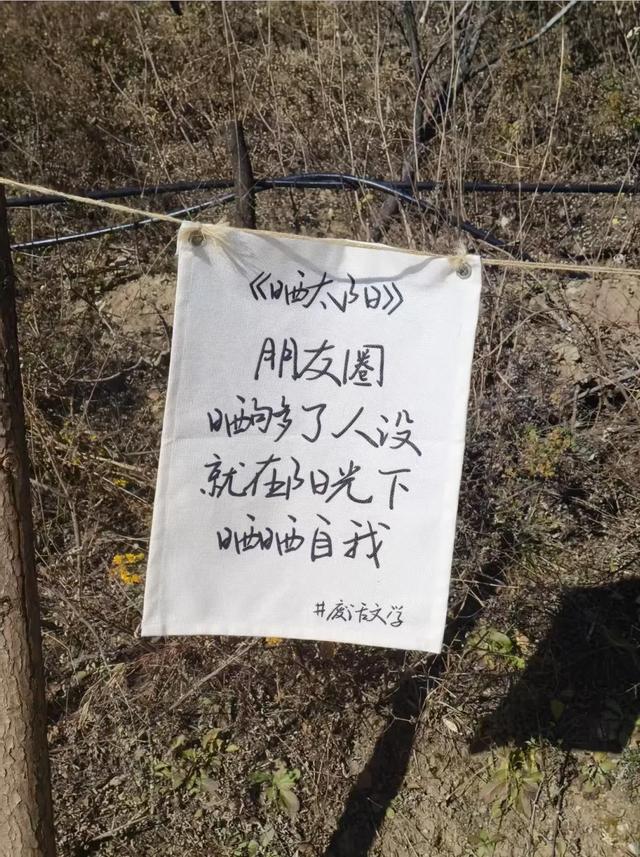 《晒太阳》
朋友圈
晒的多了人没
就在阳光下
晒晒自我
#废话文学